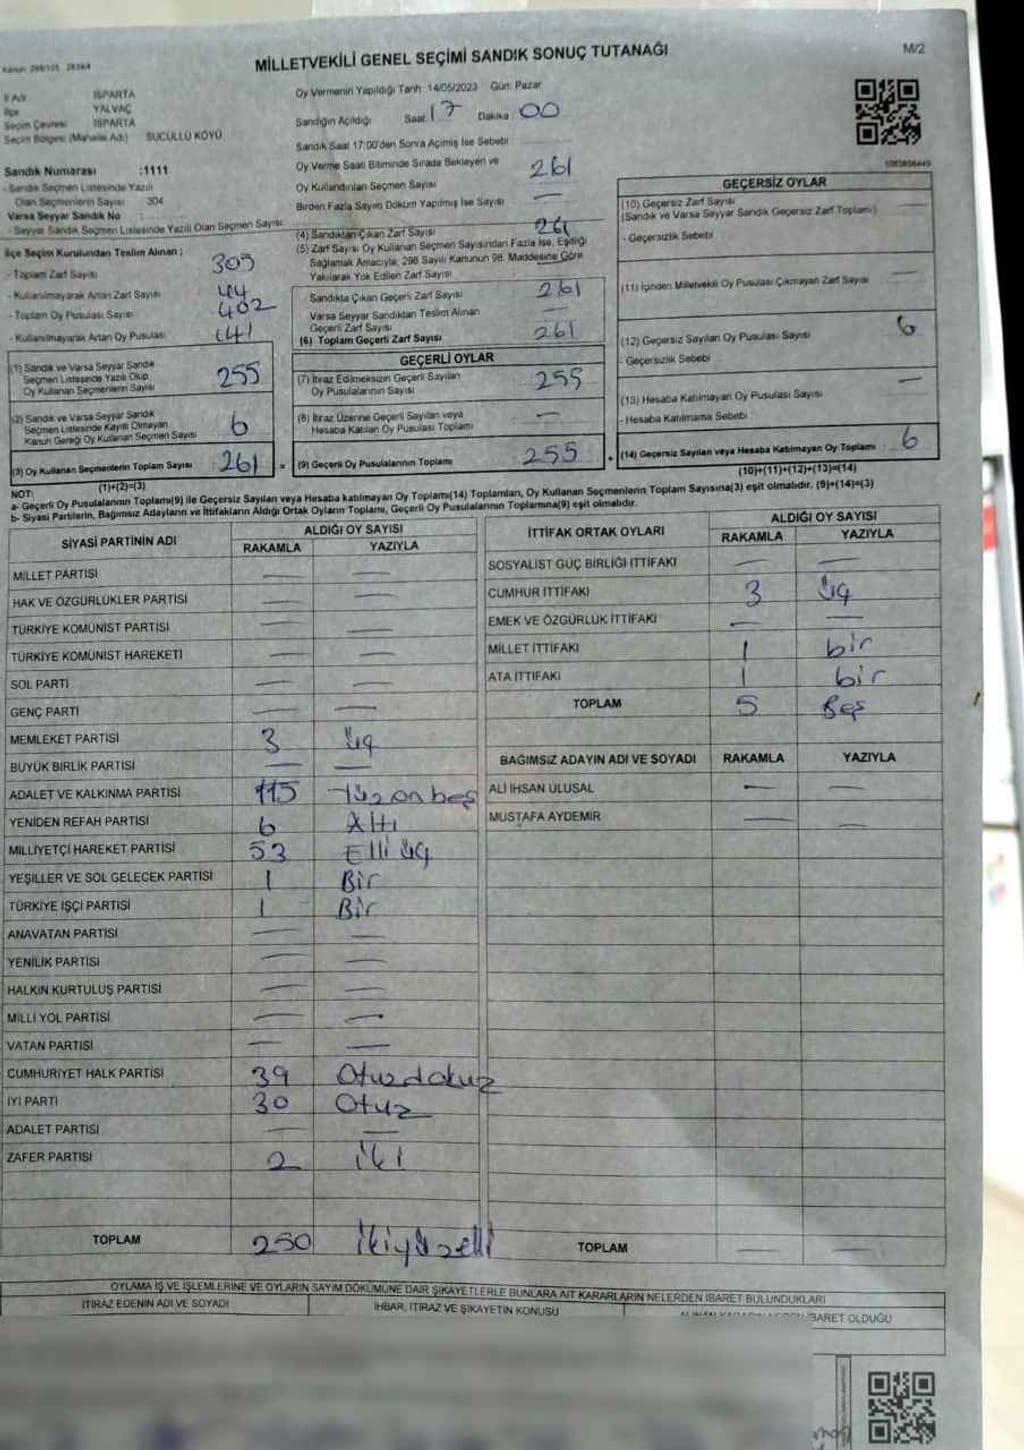 MİLLETVEKİLİ GENEL SEÇİMİ SANDIK SONUÇ TUTANAĞI
M/2
İl Adı ISPARTA
İlçe YALVAÇ
Seçim Çevresi ISPARTA
Seçim Bölgesi (Mahalle Adı) SÜCÜLLÜ KÖYÜ
Sandık Numarası :1111
- Sandık Seçmen Listesinde Yazılı
Olan Seçmenlerin Sayısı 304
Varsa Seyyar Sandık No
- Seyyar Sandık Seçmen Listesinde Yazılı Olan Seçmen Sayısı
İlçe Seçim Kurulundan Teslim Alınan ;
- Toplam Zarf Sayısı 305
- Kullanılmayarak Artan Zarf Sayısı 44
- Toplam Oy Pusulası Sayısı 402
- Kullanılmayarak Artan Oy Pusulası 141
(1) Sandık ve Varsa Seyyar Sandık
Seçmen Listesinde Yazılı Olup
Oy Kullanan Seçmenlerin Sayısı 255
(2) Sandık ve Varsa Seyyar Sandık
Seçmen Listesinde Kayıtlı Olmayan
Kanun Gereği Oy Kullanan Seçmen Sayısı 6
(3) Oy Kullanan Seçmenlerin Toplam Sayısı 261 =
(1)+(2)=(3)
Oy Vermenin Yapıldığı Tarih 14/05/2023 Gün: Pazar
Sandığın Açıldığı Saat 17 Dakika 00
Sandık Saat 17:00'den Sonra Açılmış İse Sebebi
Oy Verme Saati Bitiminde Sırada Bekleyen ve
Oy Kullandırılan Seçmen Sayısı 261
Birden Fazla Sayım Döküm Yapılmış İse Sayısı —
(4) Sandıktan Çıkan Zarf Sayısı 261
(5) Zarf Sayısı Oy Kullanan Seçmen Sayısından Fazla İse, Eşitliği
Sağlamak Amacıyla, 298 Sayılı Kanunun 98. Maddesine Göre
Yakılarak Yok Edilen Zarf Sayısı —
Sandıkta Çıkan Geçerli Zarf Sayısı 261
Varsa Seyyar Sandıktan Teslim Alınan
Geçerli Zarf Sayısı —
(6) Toplam Geçerli Zarf Sayısı 261
GEÇERLİ OYLAR
(7) İtiraz Edilmeksizin Geçerli Sayılan
Oy Pusulalarının Sayısı 255
(8) İtiraz Üzerine Geçerli Sayılan veya
Hesaba Katılan Oy Pusulası Toplamı —
(9) Geçerli Oy Pusulalarının Toplamı 255 +
GEÇERSİZ OYLAR
(10) Geçersiz Zarf Sayısı —
(Sandık ve Varsa Seyyar Sandık Geçersiz Zarf Toplamı)
- Geçersizlik Sebebi
(11) İçinden Milletvekili Oy Pusulası Çıkmayan Zarf Sayısı —
(12) Geçersiz Sayılan Oy Pusulası Sayısı 6
- Geçersizlik Sebebi
(13) Hesaba Katılmayan Oy Pusulası Sayısı —
- Hesaba Katılmama Sebebi
(14) Geçersiz Sayılan veya Hesaba Katılmayan Oy Toplamı : 6
(10)+(11)+(12)+(13)=(14)
NOT:
a- Geçerli Oy Pusulalarının Toplamı(9) ile Geçersiz Sayılan veya Hesaba katılmayan Oy Toplamı(14) Toplamları, Oy Kullanan Seçmenlerin Toplam Sayısına(3) eşit olmalıdır. (9)+(14)=(3)
b- Siyasi Partilerin, Bağımsız Adayların ve İttifakların Aldığı Ortak Oyların Toplamı, Geçerli Oy Pusulalarının Toplamına(9) eşit olmalıdır.
SİYASİ PARTİNİN ADI
ALDIĞI OY SAYISI
RAKAMLA YAZIYLA
MİLLET PARTİSİ — —
HAK VE ÖZGÜRLÜKLER PARTİSİ — —
TÜRKİYE KOMÜNİST PARTİSİ — —
TÜRKİYE KOMÜNİST HAREKETİ — —
SOL PARTİ — —
GENÇ PARTİ — —
MEMLEKET PARTİSİ 3 üç
BÜYÜK BİRLİK PARTİSİ — —
ADALET VE KALKINMA PARTİSİ 115 Yüzonbeş
YENİDEN REFAH PARTİSİ 6 Altı
MİLLİYETÇİ HAREKET PARTİSİ 53 Elli üç
YEŞİLLER VE SOL GELECEK PARTİSİ 1 Bir
TÜRKİYE İŞÇİ PARTİSİ 1 Bir
ANAVATAN PARTİSİ — —
YENİLİK PARTİSİ — —
HALKIN KURTULUŞ PARTİSİ — —
MİLLİ YOL PARTİSİ — —
VATAN PARTİSİ — —
CUMHURİYET HALK PARTİSİ 39 Otuzdokuz
İYİ PARTİ 30 Otuz
ADALET PARTİSİ — —
ZAFER PARTİSİ 2 iki
TOPLAM 250 ikiyüzelli
İTTİFAK ORTAK OYLARI
ALDIĞI OY SAYISI
RAKAMLA YAZIYLA
SOSYALİST GÜÇ BİRLİĞİ İTTİFAKI — —
CUMHUR İTTİFAKI 3 üç
EMEK VE ÖZGÜRLÜK İTTİFAKI — —
MİLLET İTTİFAKI 1 bir
ATA İTTİFAKI 1 bir
TOPLAM 5 Beş
BAĞIMSIZ ADAYIN ADI VE SOYADI RAKAMLA YAZIYLA
ALİ İHSAN ULUSAL — —
MUSTAFA AYDEMİR — —
TOPLAM — —
OYLAMA İŞ VE İŞLEMLERİNE VE OYLARIN SAYIM DÖKÜMÜNE DAİR ŞİKAYETLERLE BUNLARA AİT KARARLARIN NELERDEN İBARET BULUNDUKLARI
İTİRAZ EDENİN ADI VE SOYADI
İHBAR, İTİRAZ VE ŞİKAYETİN KONUSU